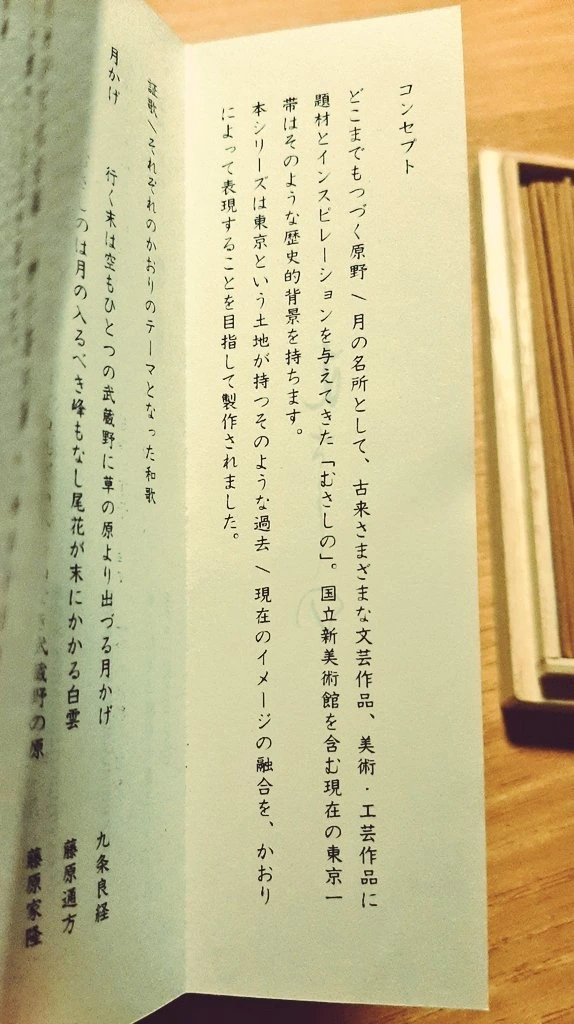 コンセプト
どこまでもつづく原野／月の名所として、古来さまざまな文芸作品、美術・工芸作品に
題材とインスピレーションを与えてきた「むさしの」。国立新美術館を含む現在の東京一
帯はそのような歴史的背景を持ちます。
本シリーズは東京という土地が持つそのような過去／現在のイメージの融合を、かおり
によって表現することを目指して製作されました。
証歌／それぞれのかおりのテーマとなった和歌
月かげ 行く末は空もひとつの武蔵野に草の原より出づる月かげ 九条良経
のは月の入るべき峰もなし尾花が末にかかる白雲 藤原通方
武蔵野の原 藤原家隆